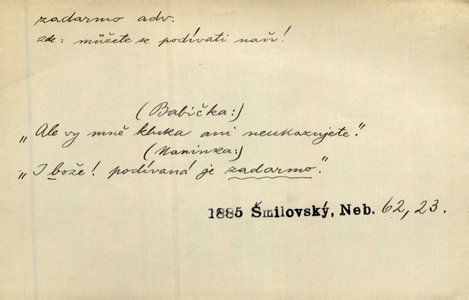 zadarmo adv.
zde: můžete se podívati naň!
(Babička:)
„Ale vy mně kluka ani neukazujete."
(Maninka:)
„I bože! podívaná je zadarmo."
1885 Šmilovský, Neb. 62, 23.